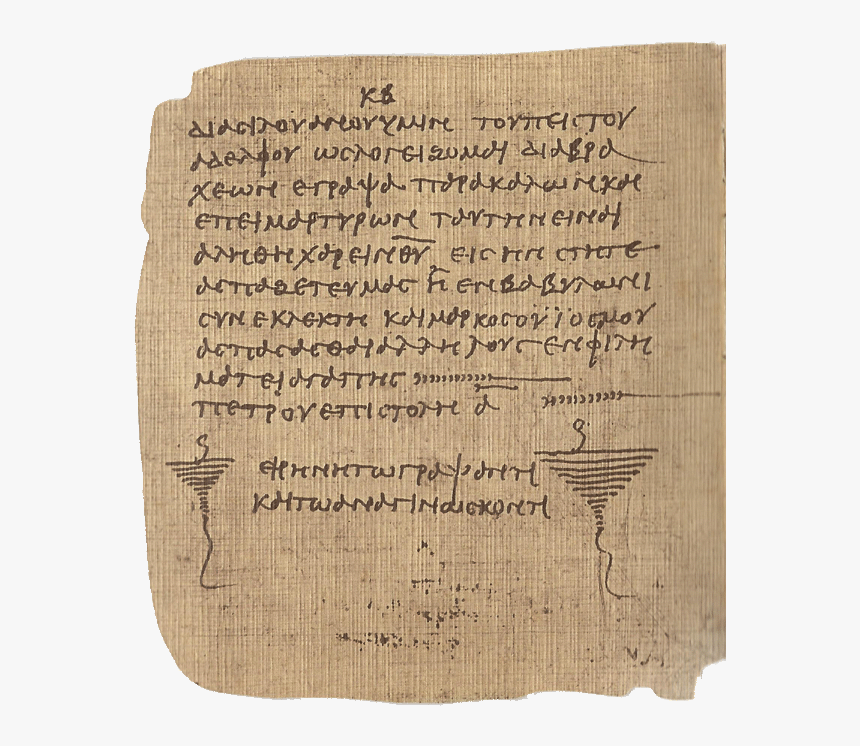 ΚΒ
ΔΙΑ ϹΙΛΟΥΑΝΟΥ ΥΜΙΝ ΤΟΥ ΠΕΙϹΤΟΥ
ΑΔΕΛΦΟΥ ΩϹ ΛΟΓΕΙΖΟΜΑΙ ΔΙΑ ΒΡΑ
ΧΕΩΝ ΕΓΡΑΨΑ ΠΑΡΑΚΑΛΩΝ ΚΑΙ
ΕΠΕΙΜΑΡΤΥΡΩΝ ΤΑΥΤΗΝ ΕΙΝΑΙ
ΑΛΗΘΗ ΧΑΡΕΙΝ Θ̅Υ̅ ΕΙϹ ΗΝ ϹΤΗΤΕ
ΑϹΠΑΖΕΤΕ ΥΜΑϹ Η ΕΝ ΒΑΒΥΛΩΝΙ
ϹΥΝΕΚΛΕΚΤΗ ΚΑΙ ΜΑΡΚΟϹ Ο ΫΪΟϹ ΜΟΥ
ΑϹΠΑϹΑϹΘΑΙ ΑΛΛΗΛΟΥϹ ΕΝ ΦΙΛΗ
ΜΑΤΕΙ ΑΓΑΠΗϹ
ΠΕΤΡΟΥ ΕΠΙϹΤΟΛΗ Α̅
ΕΙΡΗΝΗ ΤΩ ΓΡΑΨΑΝΤΙ
ΚΑΙ ΤΩ ΑΝΑΓΙΝΩϹΚΟΝΤΙ